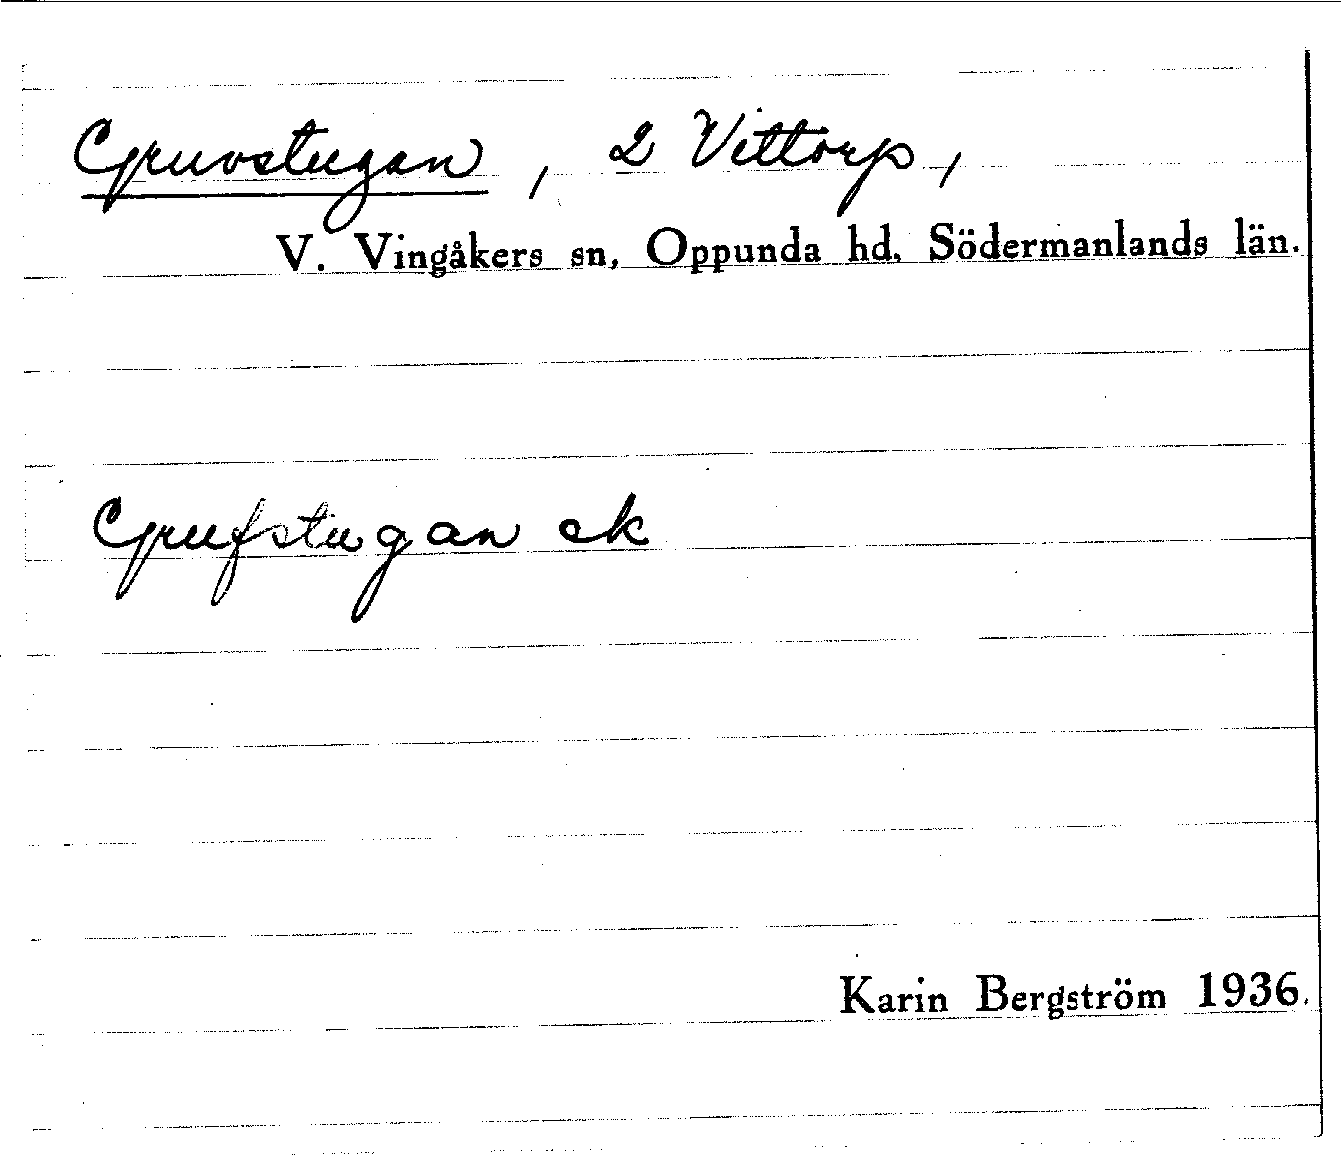 Gruvstugan, 2 Vittorp,
V. Vingåkers sn, Oppunda hd, Södermanlands län.
Grufstugan ek
Karin Bergström 1936.